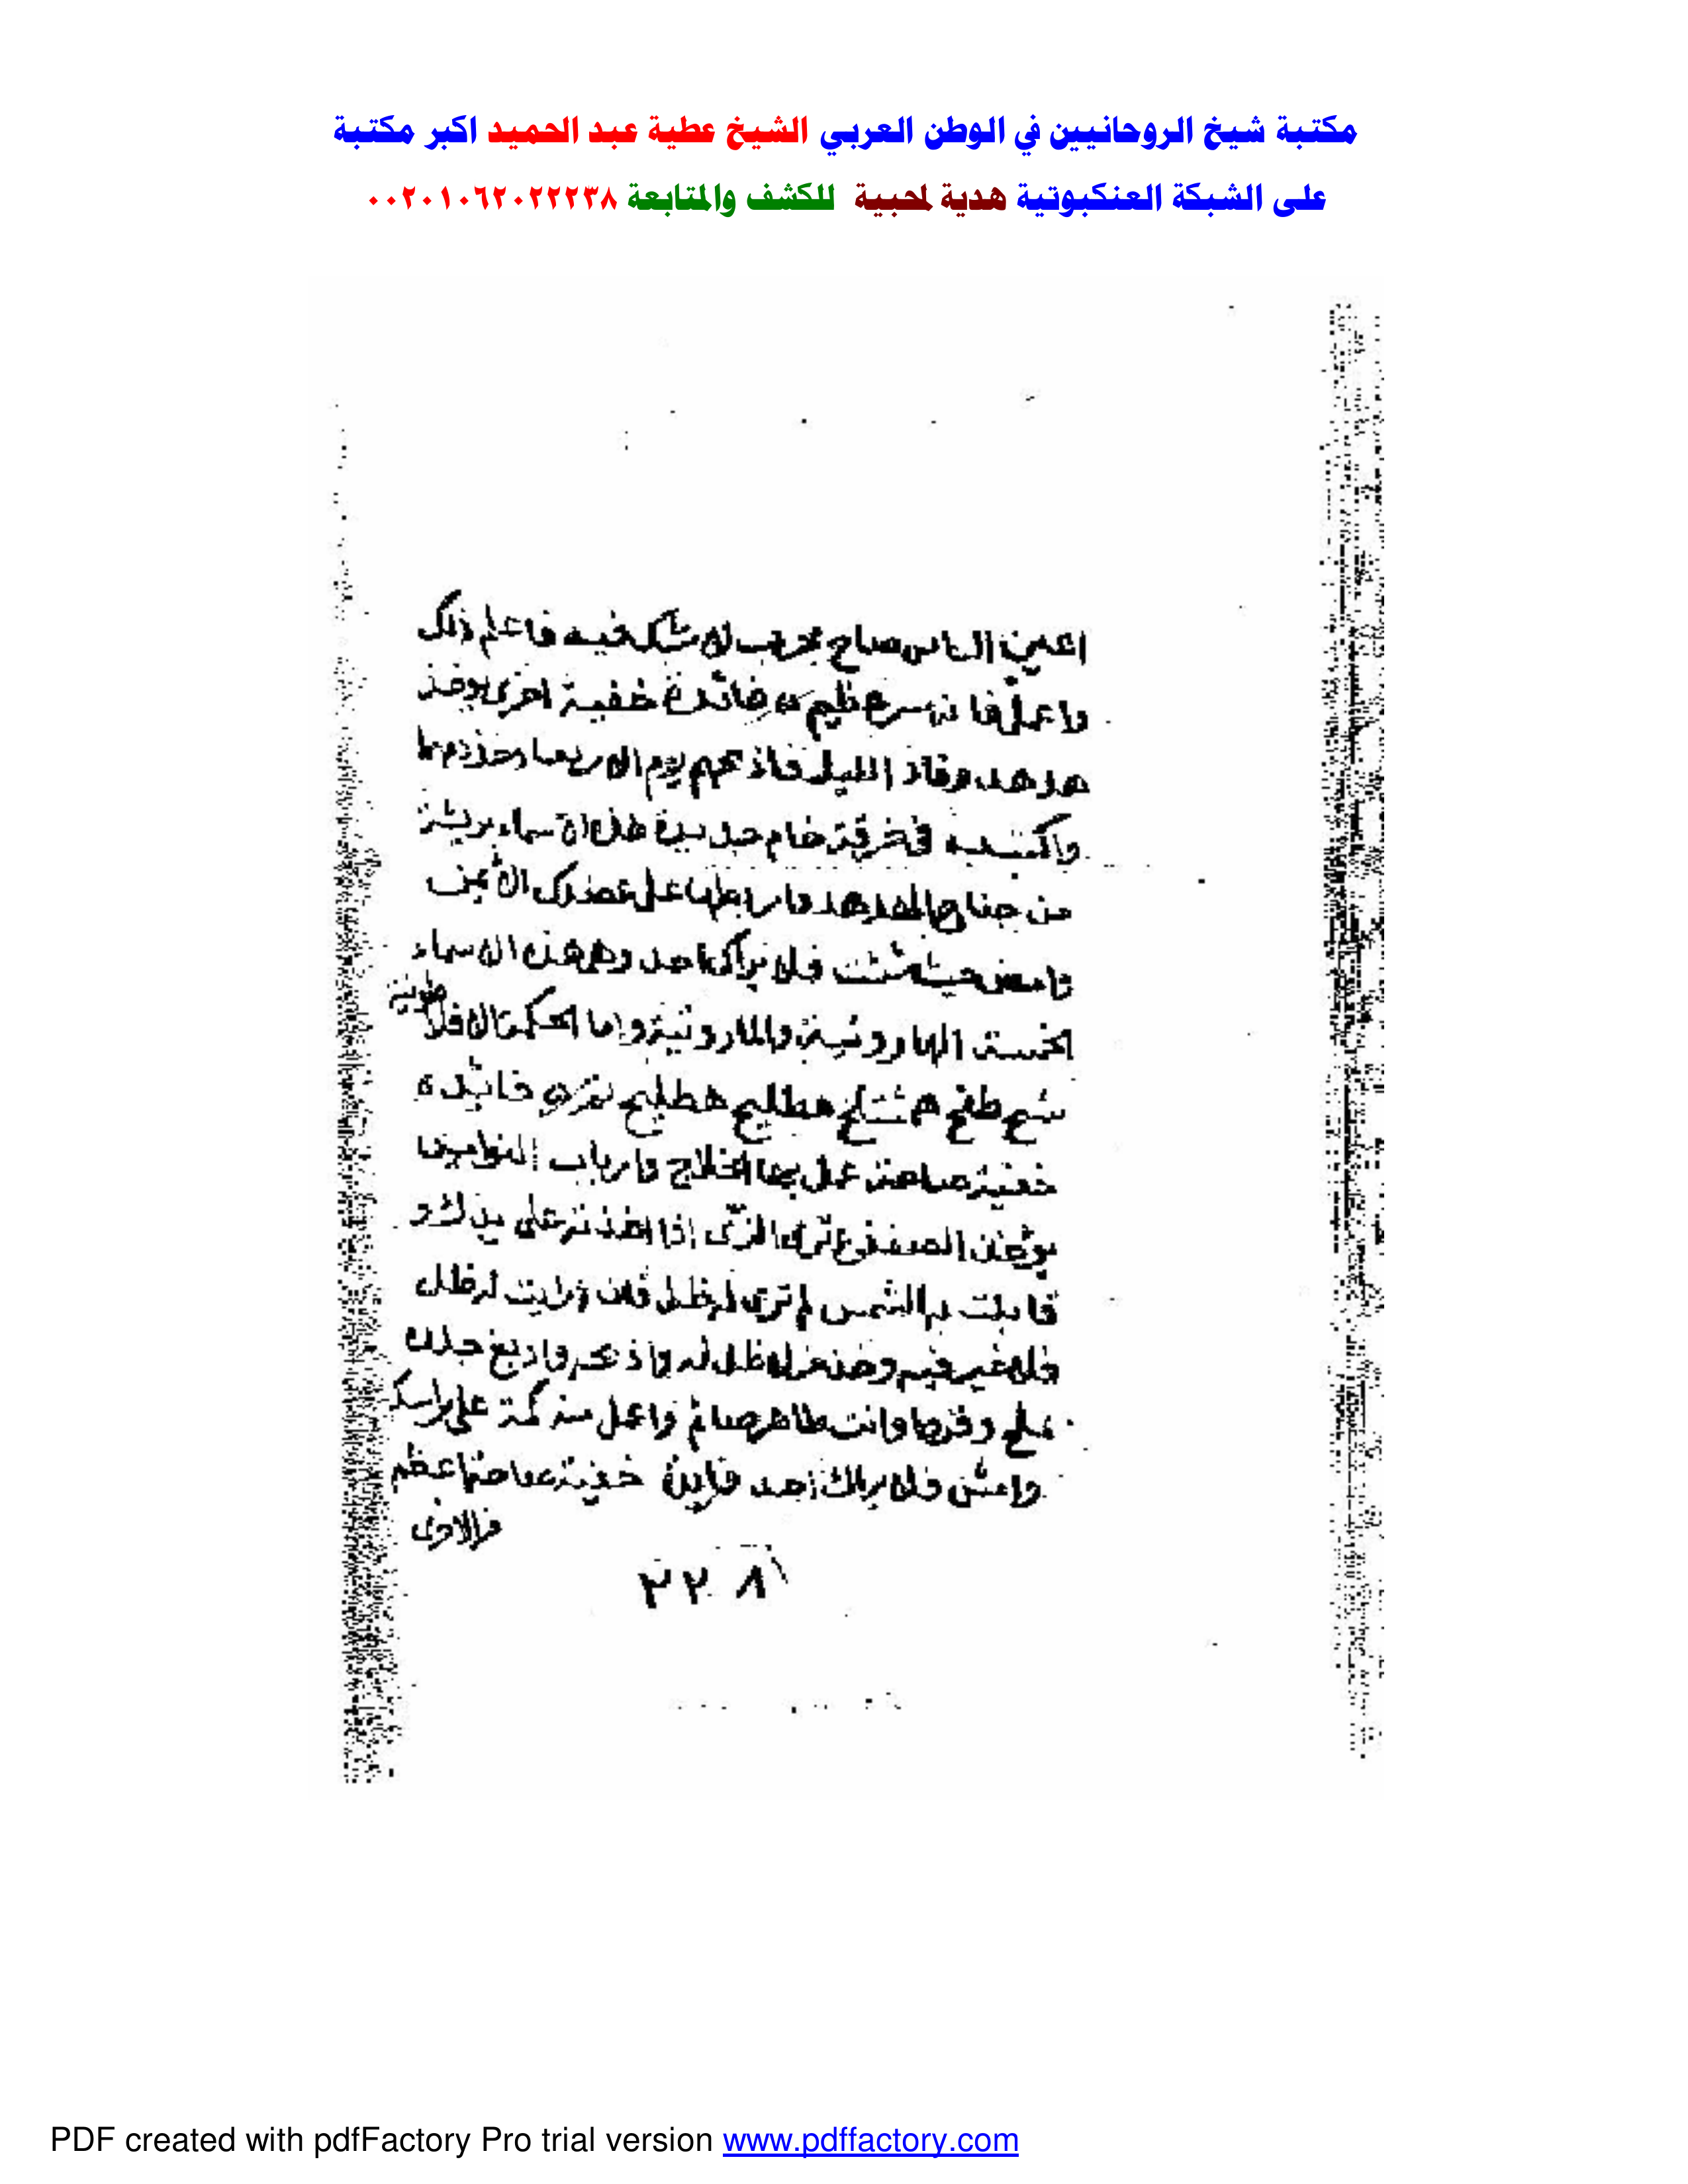 مكتبة شيخ الروحانيين في الوطن العربي الشيخ عطية عبد الحميد اكبر مكتبة
على الشبكة العنكبوتية هدية لمحبيه للكشف والمتابعة ٠٠٢٠١٠٦٢٠٢٢٢٣٨
اعين الناس صاح مجرب لا شك فيه فاعلم ذلك
واعمل فانه سر عظيم فائدة خفية اخرى يوخذ
هدهد فاذبحهم يوم الاربعا وخذ دمهما
واكتب به في خرقة خام جديدة هذه الاسماء بريشة
من جناح الهدهد واربطها على عضدك الايمن
وامض حيث شئت فلا يراك احد وهي هذه الاسماء
الخمسة الهارونية والمارونية واما الحكمة الافلا
طونية
هطليج هطليج فائدة
خفية صاحت عمل بها الحلاج وارباب النواميس
يوخذ الضفدع الذي اذا اخذته على يدك و
قابلت به الشمس لم ترى له ظل فان رايت له ظل
فلا خير فيه وخذ غيره لا ظل له واذبحه وادبغ جلده
بملح وقرض وانت طاهر صائم واعمل منه كمة على راسك
وامش فلا يراك احد فايدة خفية عن صاحبها عظم
من الاولى
٢٢٨
PDF created with pdfFactory Pro trial version www.pdffactory.com